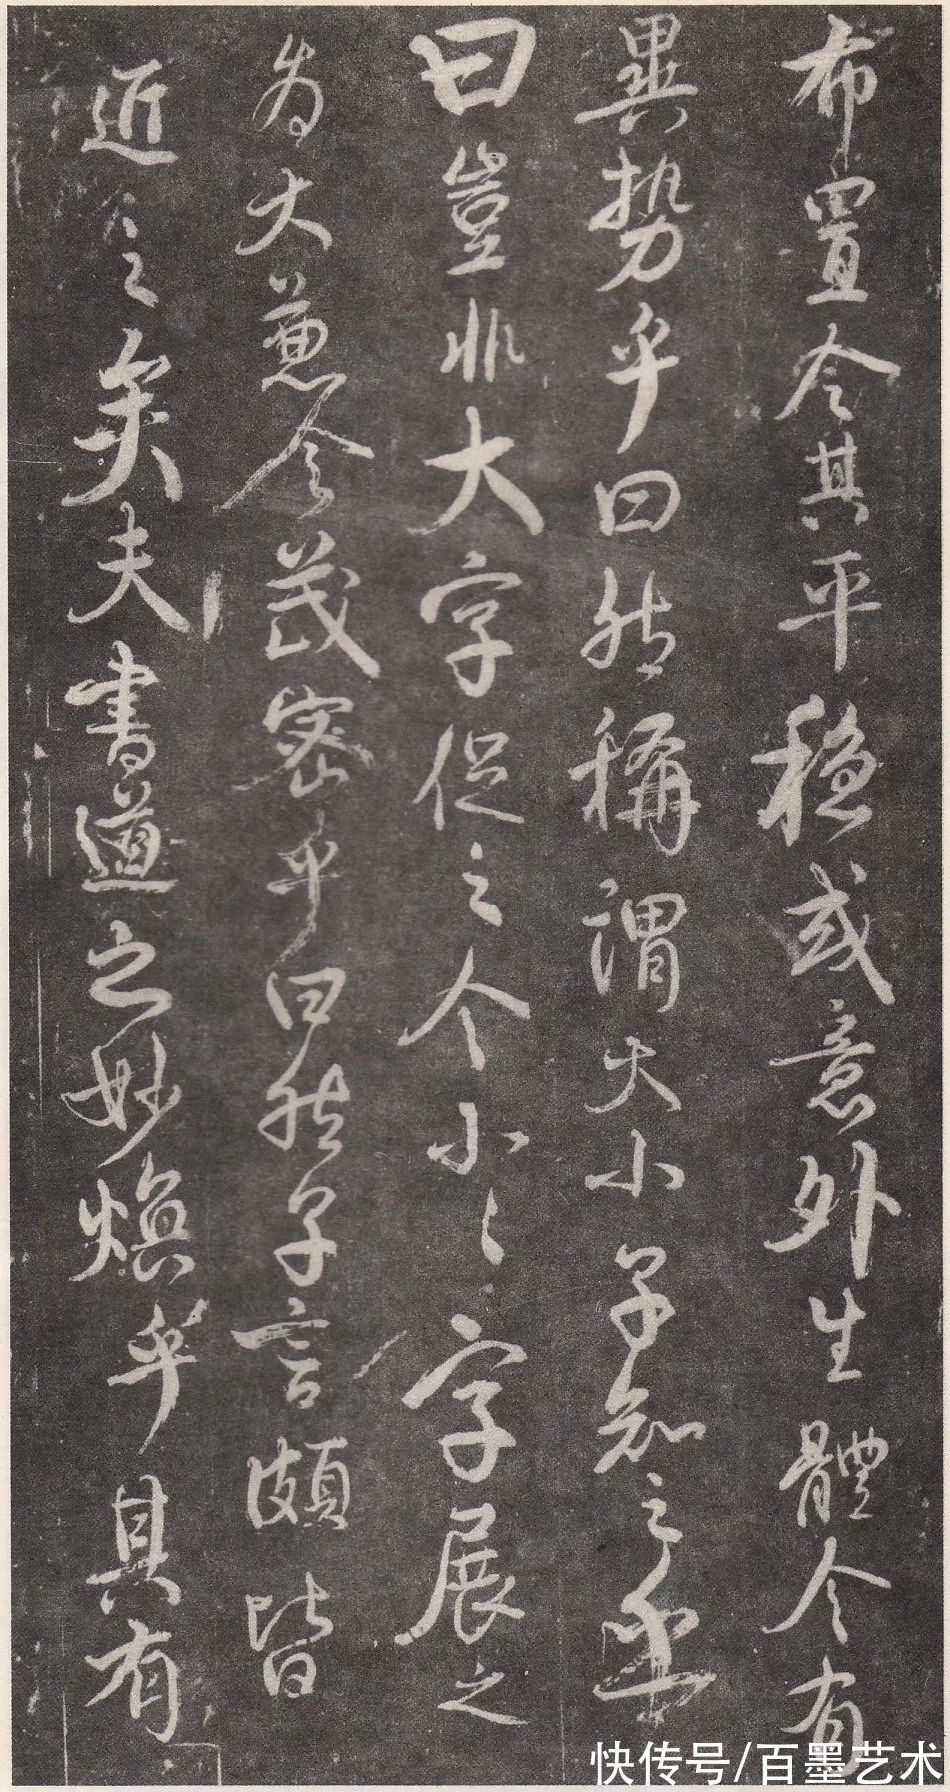 布置令其平穩或意外生體令有
異勢乎曰然稱謂大小子知之乎
曰豈非大字促之令小〻字展之
為大兼令茂密乎曰然子言頗皆
近之矣夫書道之妙煥乎其有
快传号/百墨艺术